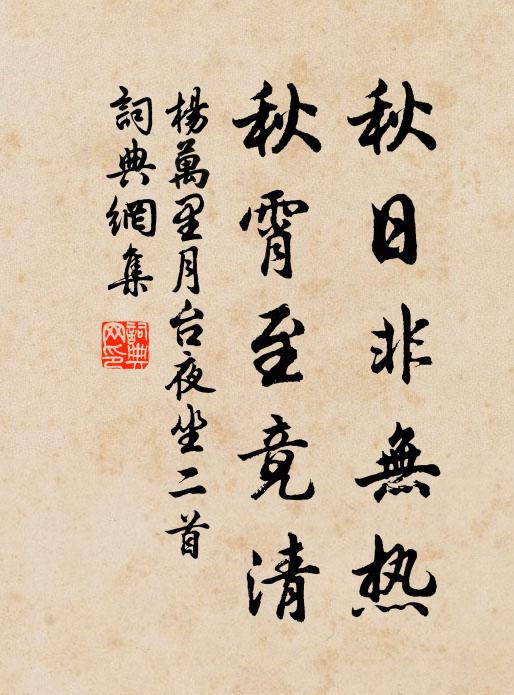 秋日非無热
秋霄至竟清
楊萬里月台夜坐二首
詞典網集
詞典网印